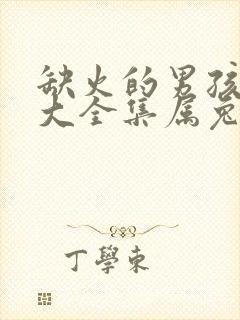 缺火的男孩
大全集属兔
丁學東